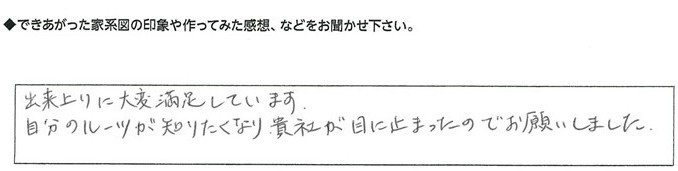 ◆できあがった家系図の印象や作ってみた感想、などをお聞かせ下さい。
出来上りに大変満足しています.
自分のルーツが知りたくなり貴社が目に止まったのでお願いしました.